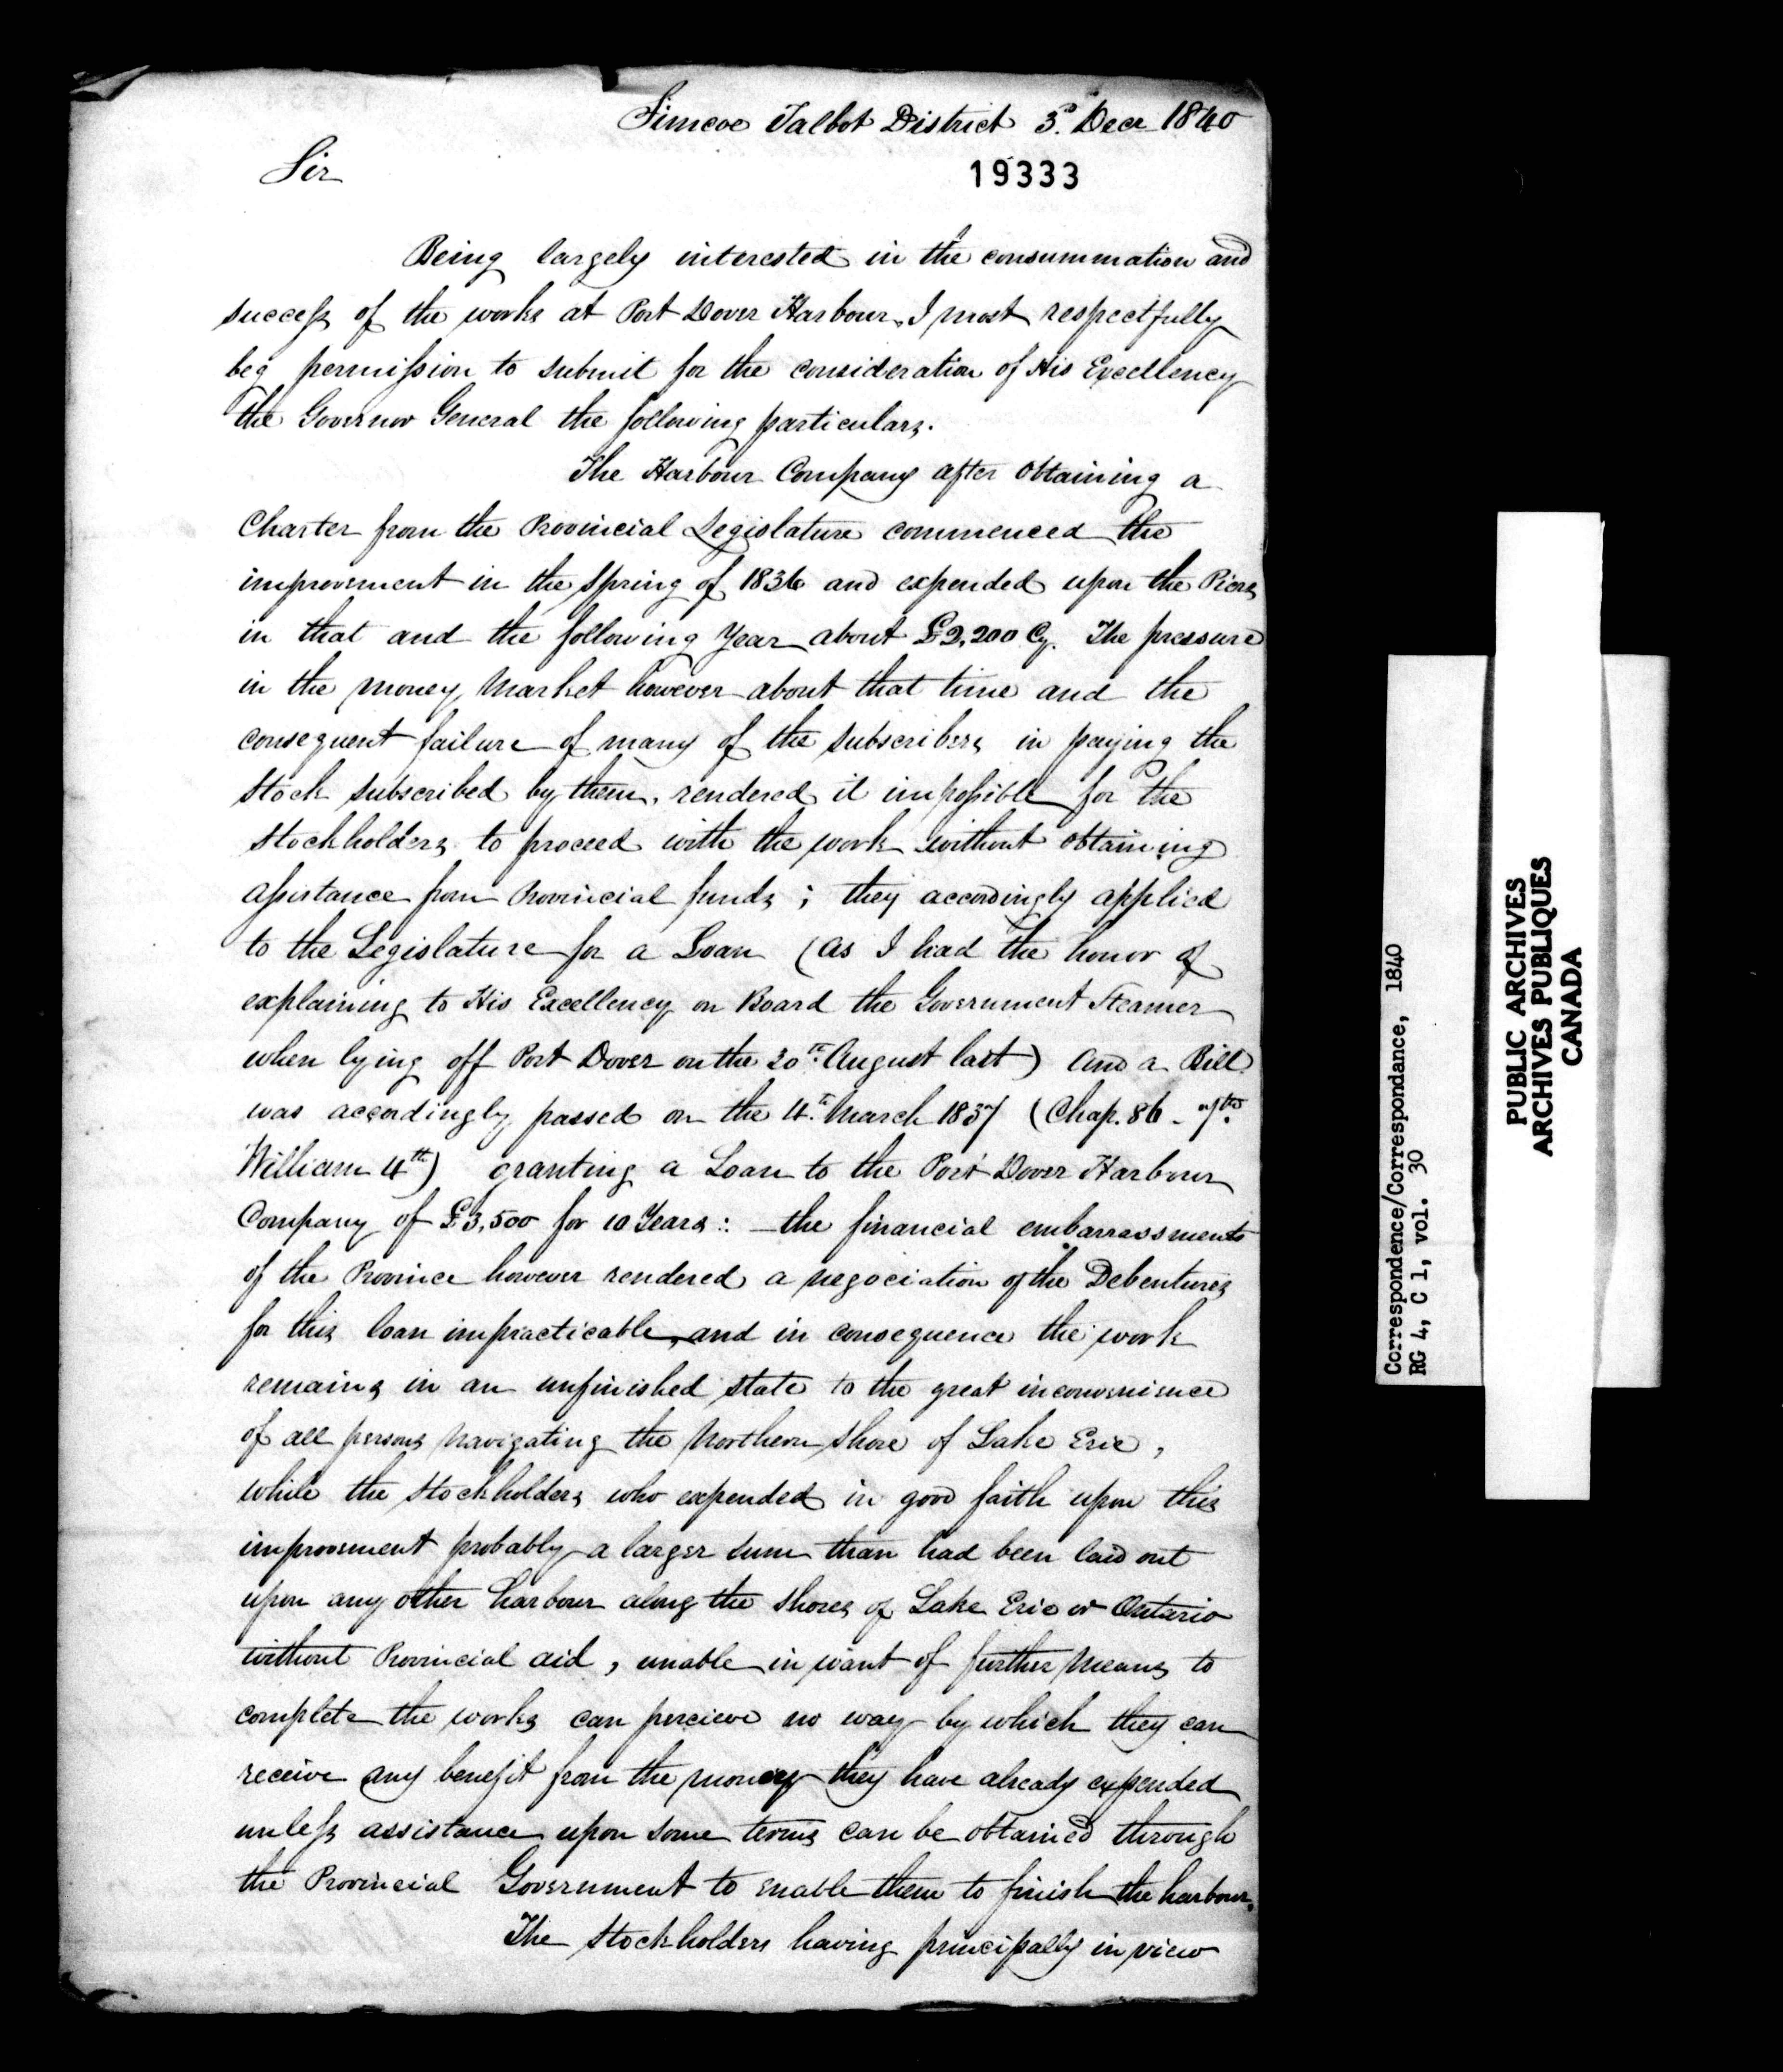 Simcoe Talbot District 3d. Decr 1840
19333
Sir
Being largely interested in the consummation and
success of the works at Port Dover Harbour, I most respectfully
beg permission to submit for the consideration of His Excellency
the Governor General the following particulars.
The Harbour Company after obtaining a
Charter from the Provincial Legislature commenced the
improvement in the Spring of 1836 and expended upon the Piers
in that and the following Year about £2,200 Cy. The pressure
in the money Market however about that time and the
consequent failure of many of the subscribers in paying the
Stock subscribed by them, rendered it impossible for the
Stockholders to proceed with the work without obtaining
assistance from Provincial funds; they accordingly applied
to the Legislature for a Loan (as I had the honor of
explaining to His Excellency on Board the Government Steamer
when lying off Port Dover on the 20th August last) And a Bill
was accordingly passed on the 4th March 1837 (Chap. 86 - 7th
William 4th) granting a Loan to the Port Dover Harbour
Company of £3,500 for 10 Years: - the financial embarrassments
of the Province however rendered a negociation of the Debentures
for this loan impracticable, and in consequence the work
remains in an unfinished state to the great inconvenience
of all persons navigating the Northern Shore of Lake Erie,
while the Stockholders who expended in good faith upon this
improvement probably a larger sum than had been laid out
upon any other harbour along the shores of Lake Erie or Ontario
without Provincial aid, unable in want of further Means to
complete the works can percieve no way by which they can
receive any benefit from the money they have already expended
unless assistance upon some terms can be obtained through
the Provincial Government to enable them to finish the harbour.
The Stockholders having principally in view
Correspondence/Correspondance, 1840
RG 4, C 1, vol. 30
PUBLIC ARCHIVES
ARCHIVES PUBLIQUES
CANADA